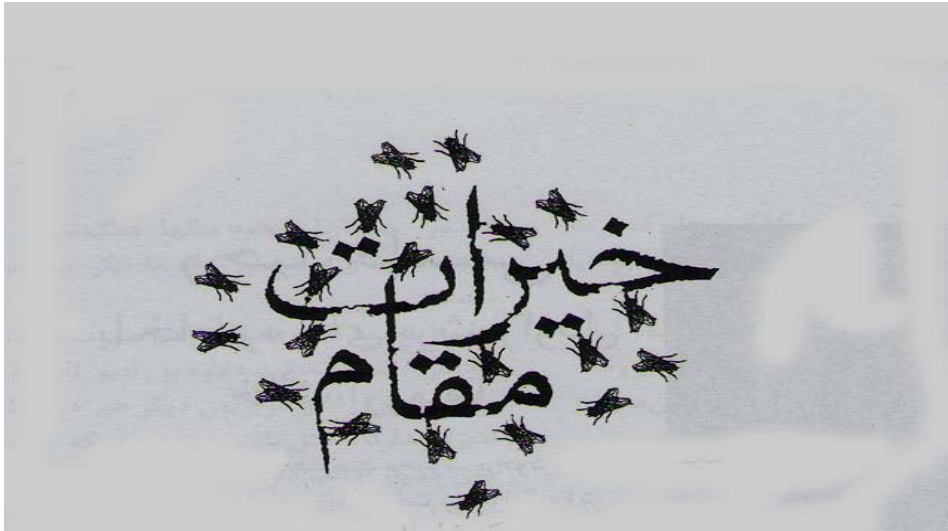 خیرات
مقام